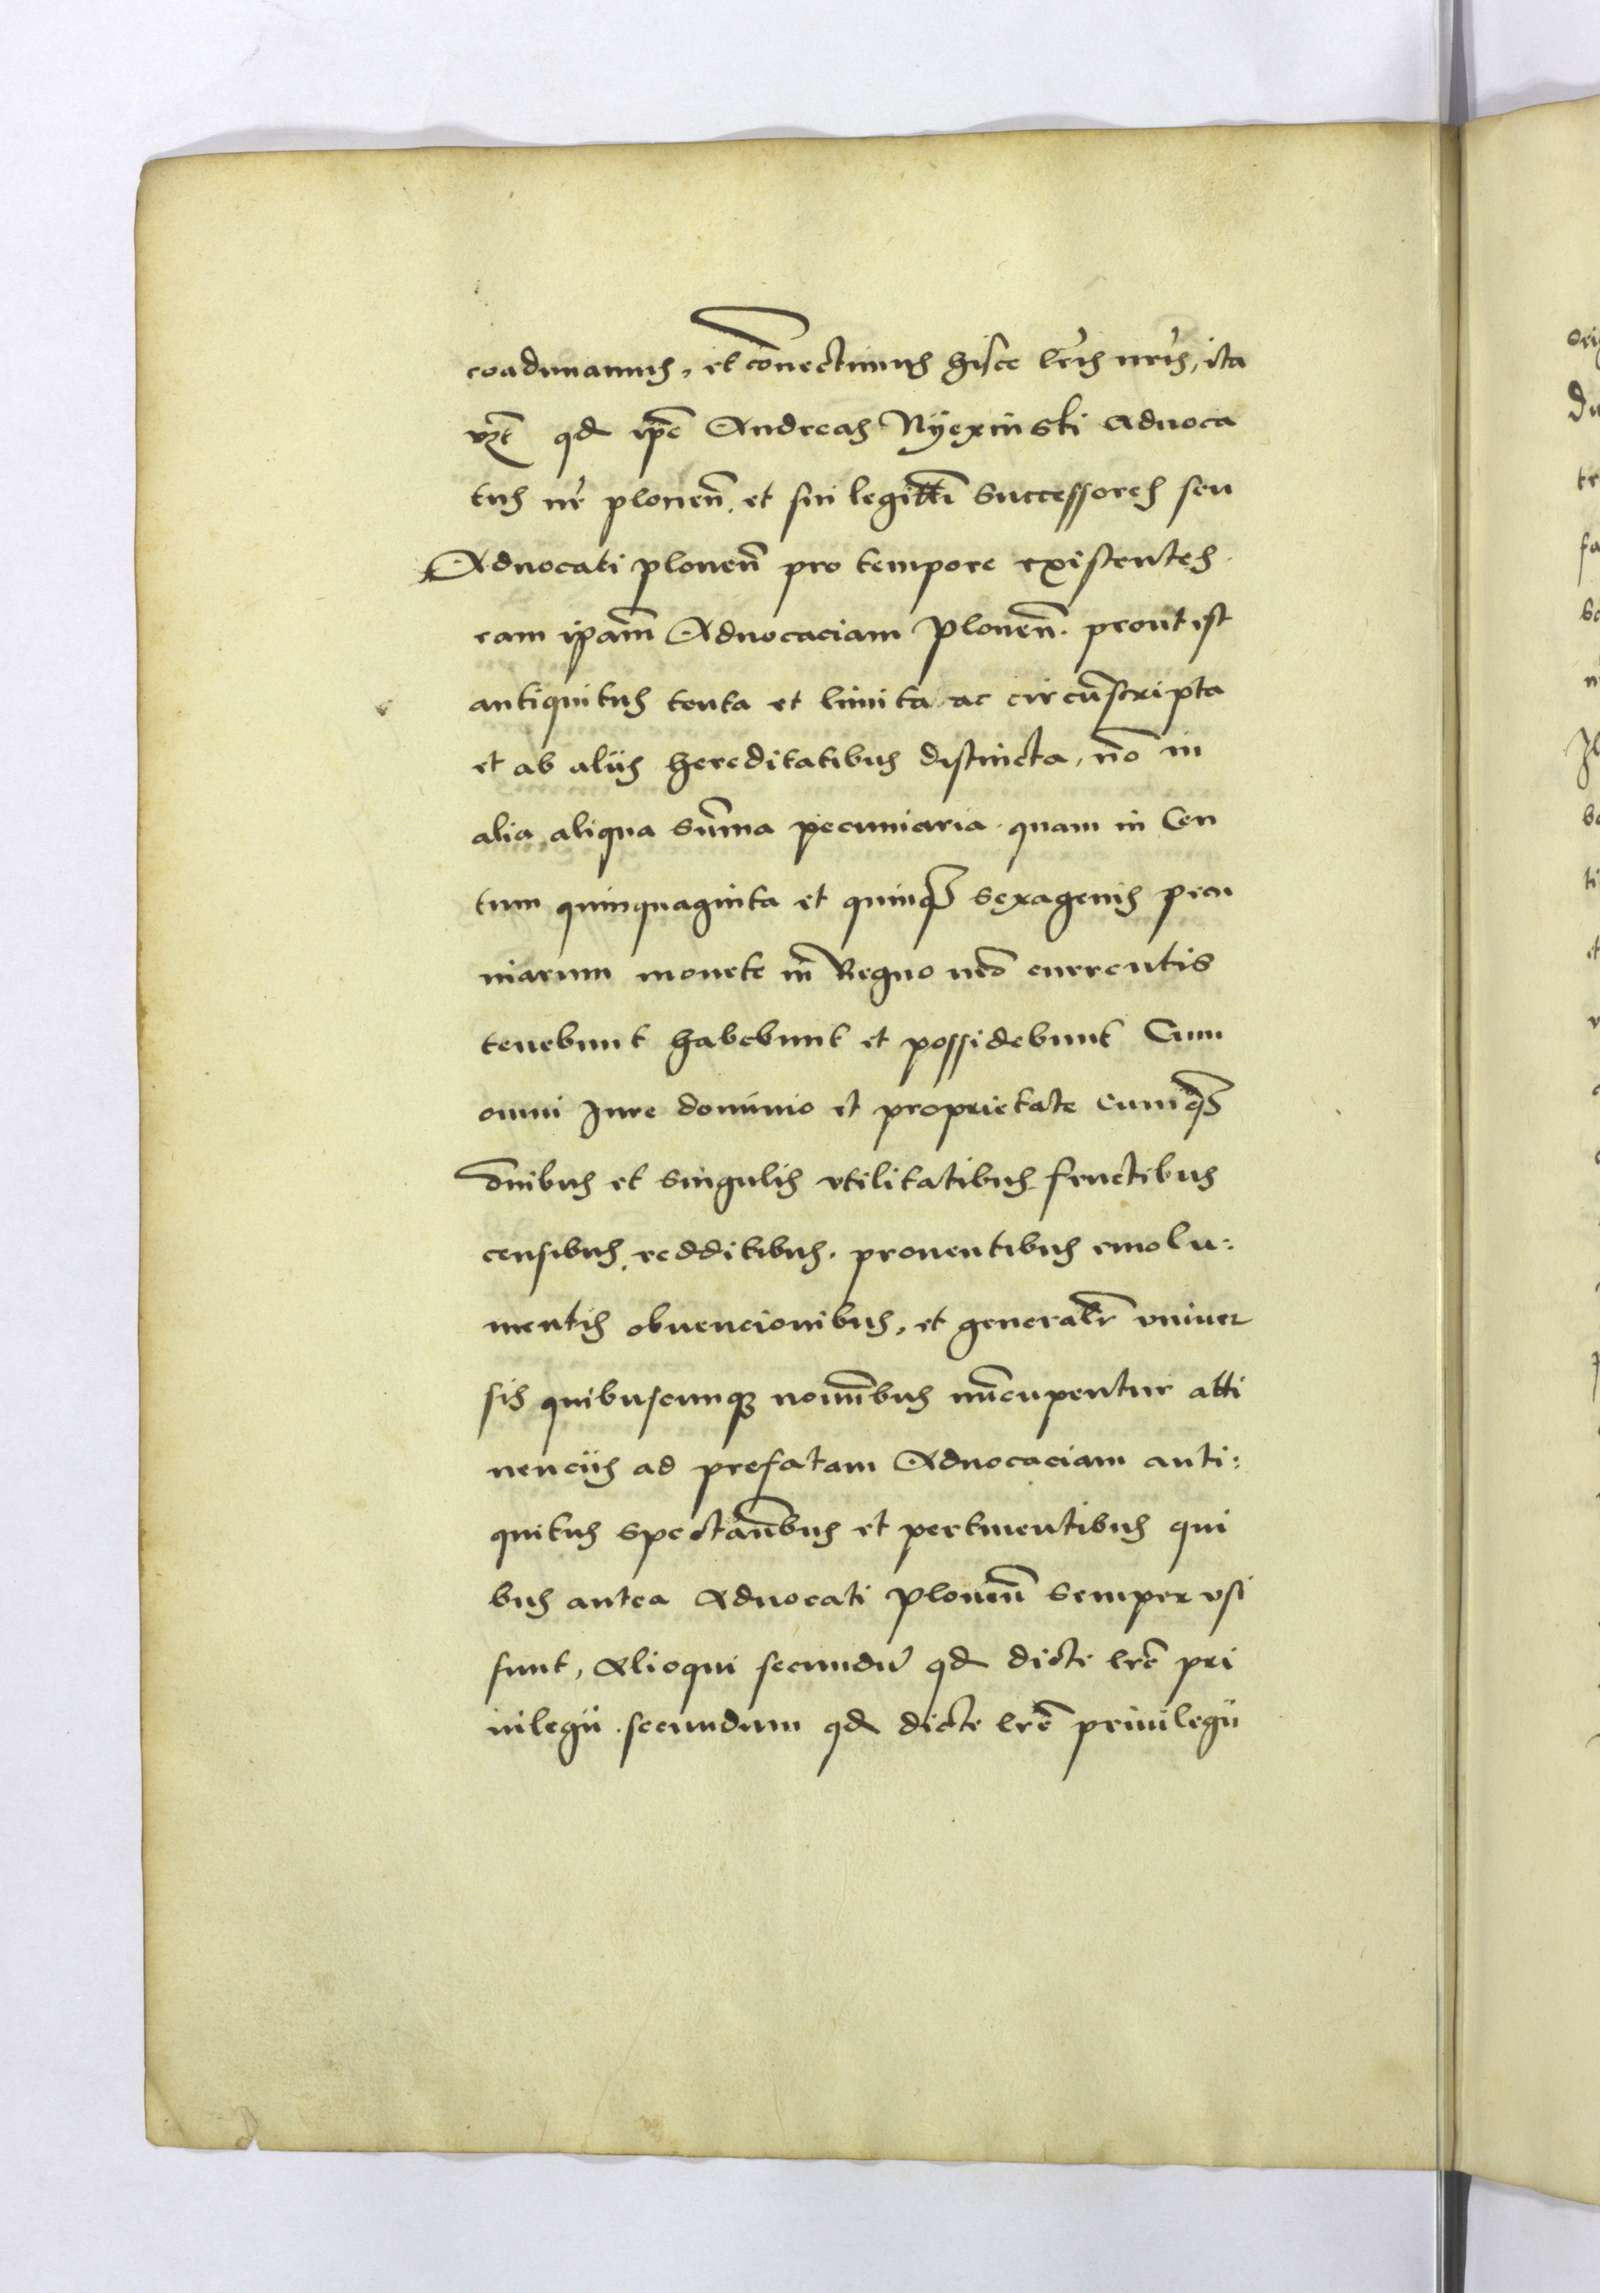 coadunamus, et conectimus hisce lris nris, ita
vzt qd ipe Andreas Nyexinski Aduoca
tus nr plonen. et sui legitti Successores seu
Aduocati plonen pro tempore existentes.
eam ipam Aduocaciam Plonen. prout est
antiquitus tenta et limita ac circuscripta
et ab aliis hereditatibus distincta, no in
alia aliqua suma pecuniaria. quam in Cen
tum quinquaginta et quinq sexagenis pecu
niarum monete in Regno nro currentis
tenebunt habebunt et possidebunt Cum
omni Jure dominio et proprietate Cumq
omibus et singulis vtilitatibus fructibus
censibus, redditibus. prouentibus emolu:
mentis obuencionibus, et generalr vniuer
sis quibuscunq nominbus nucupentur atti
nenciis ad prefatam Aduocaciam anti:
quitus spectanbus et pertinentibus qui
bus antea Aduocati plonen semper vsi
sunt, Alioqui secundu qd dicte lre pri
uilegii. secundum qd dicte lre priuilegii